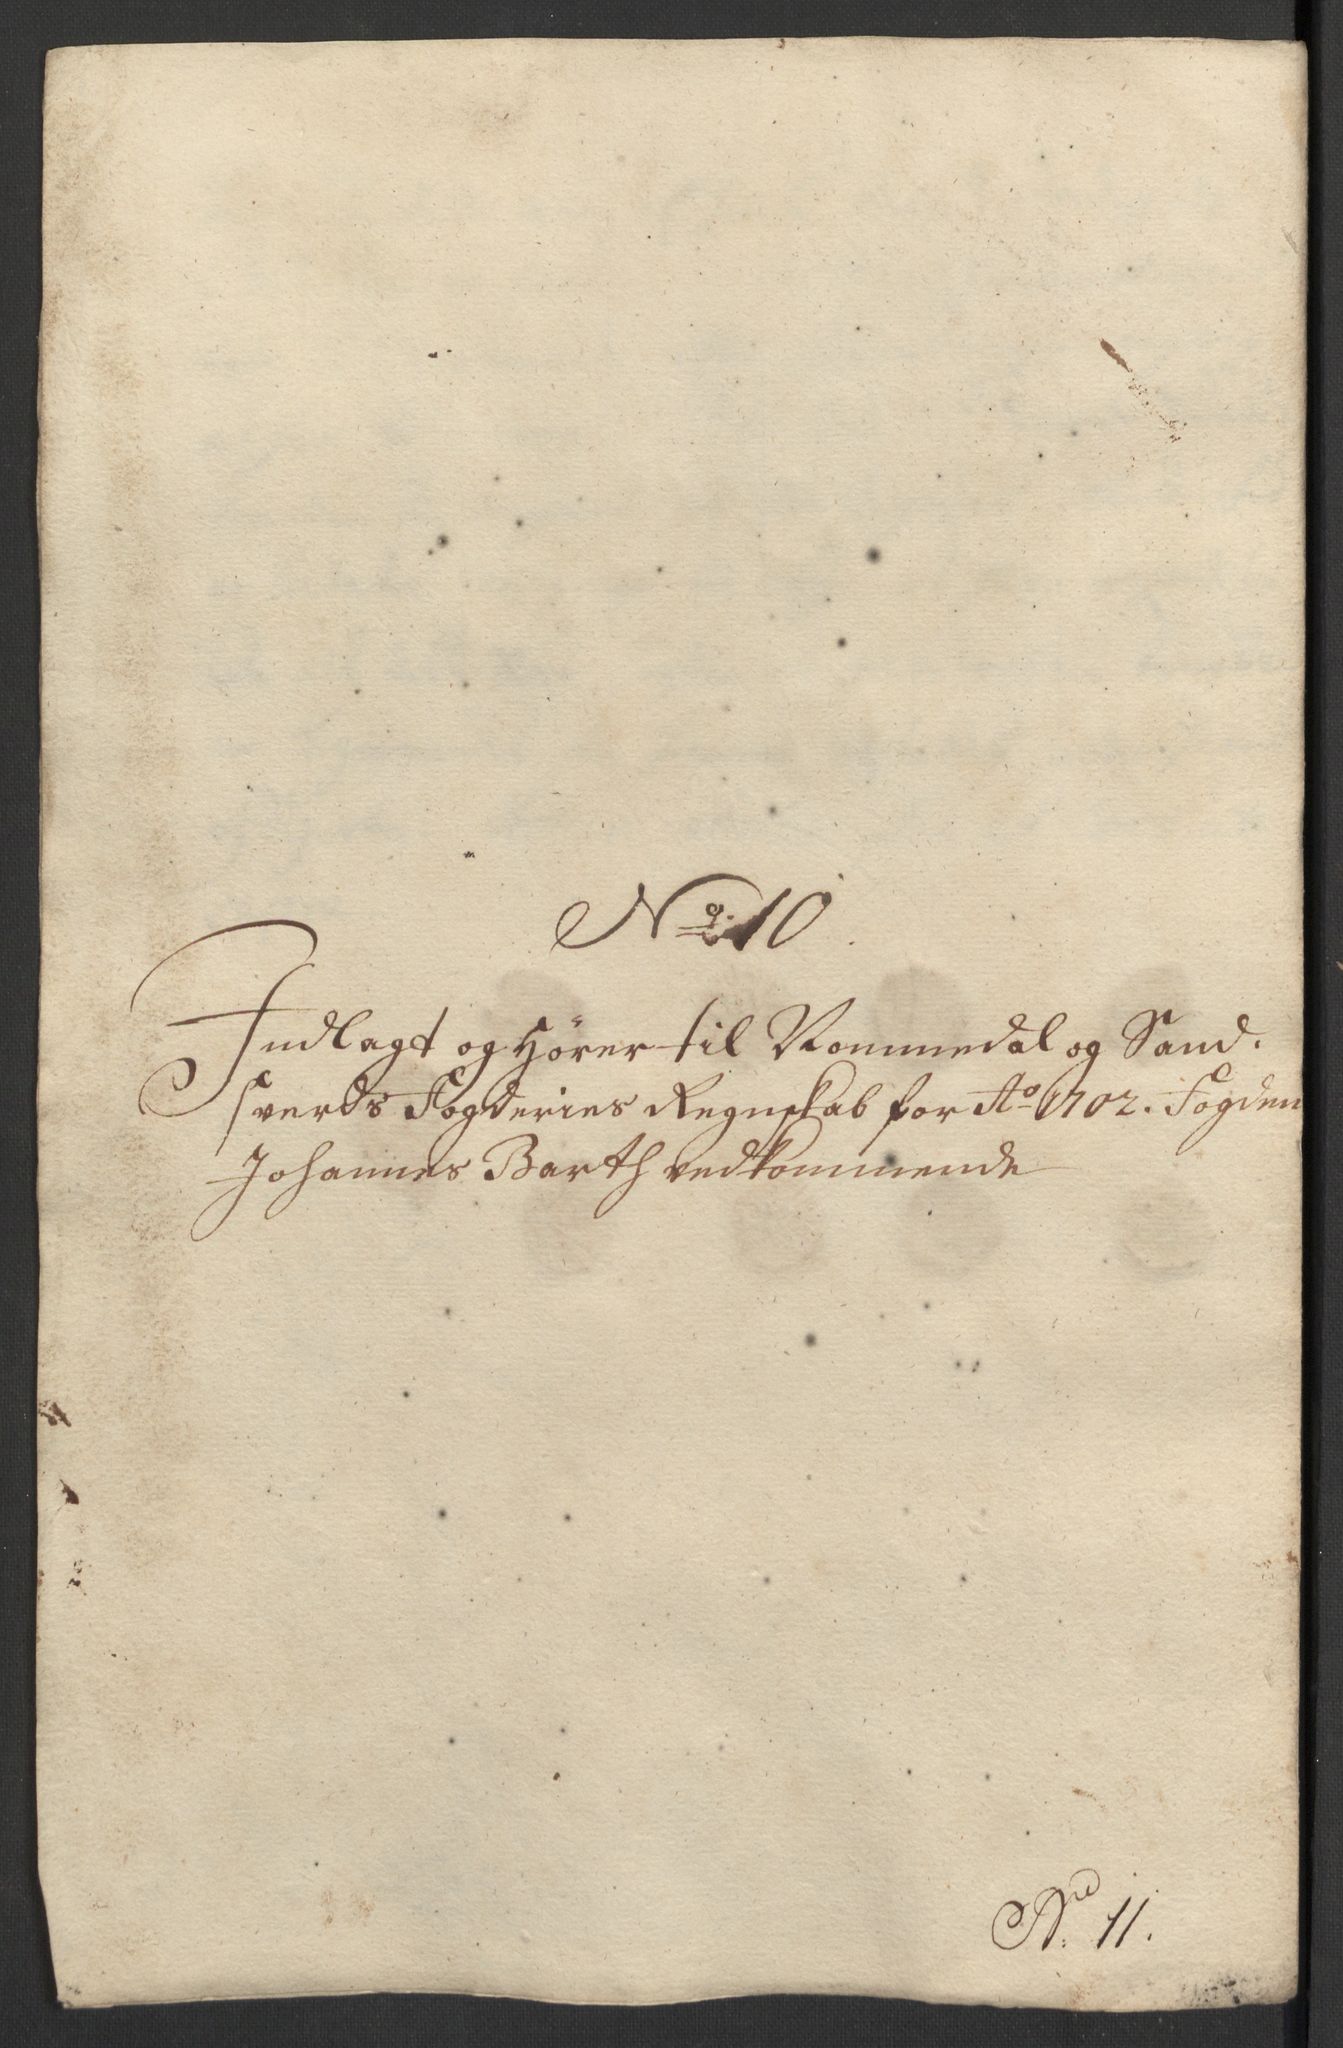 No. 10.
Indlagt og Hører til Nommedal og Sand,
sverds Fogderies Regnskab for Ao 1702. Fogden
Johannes Barth vedkommende
No. 11.